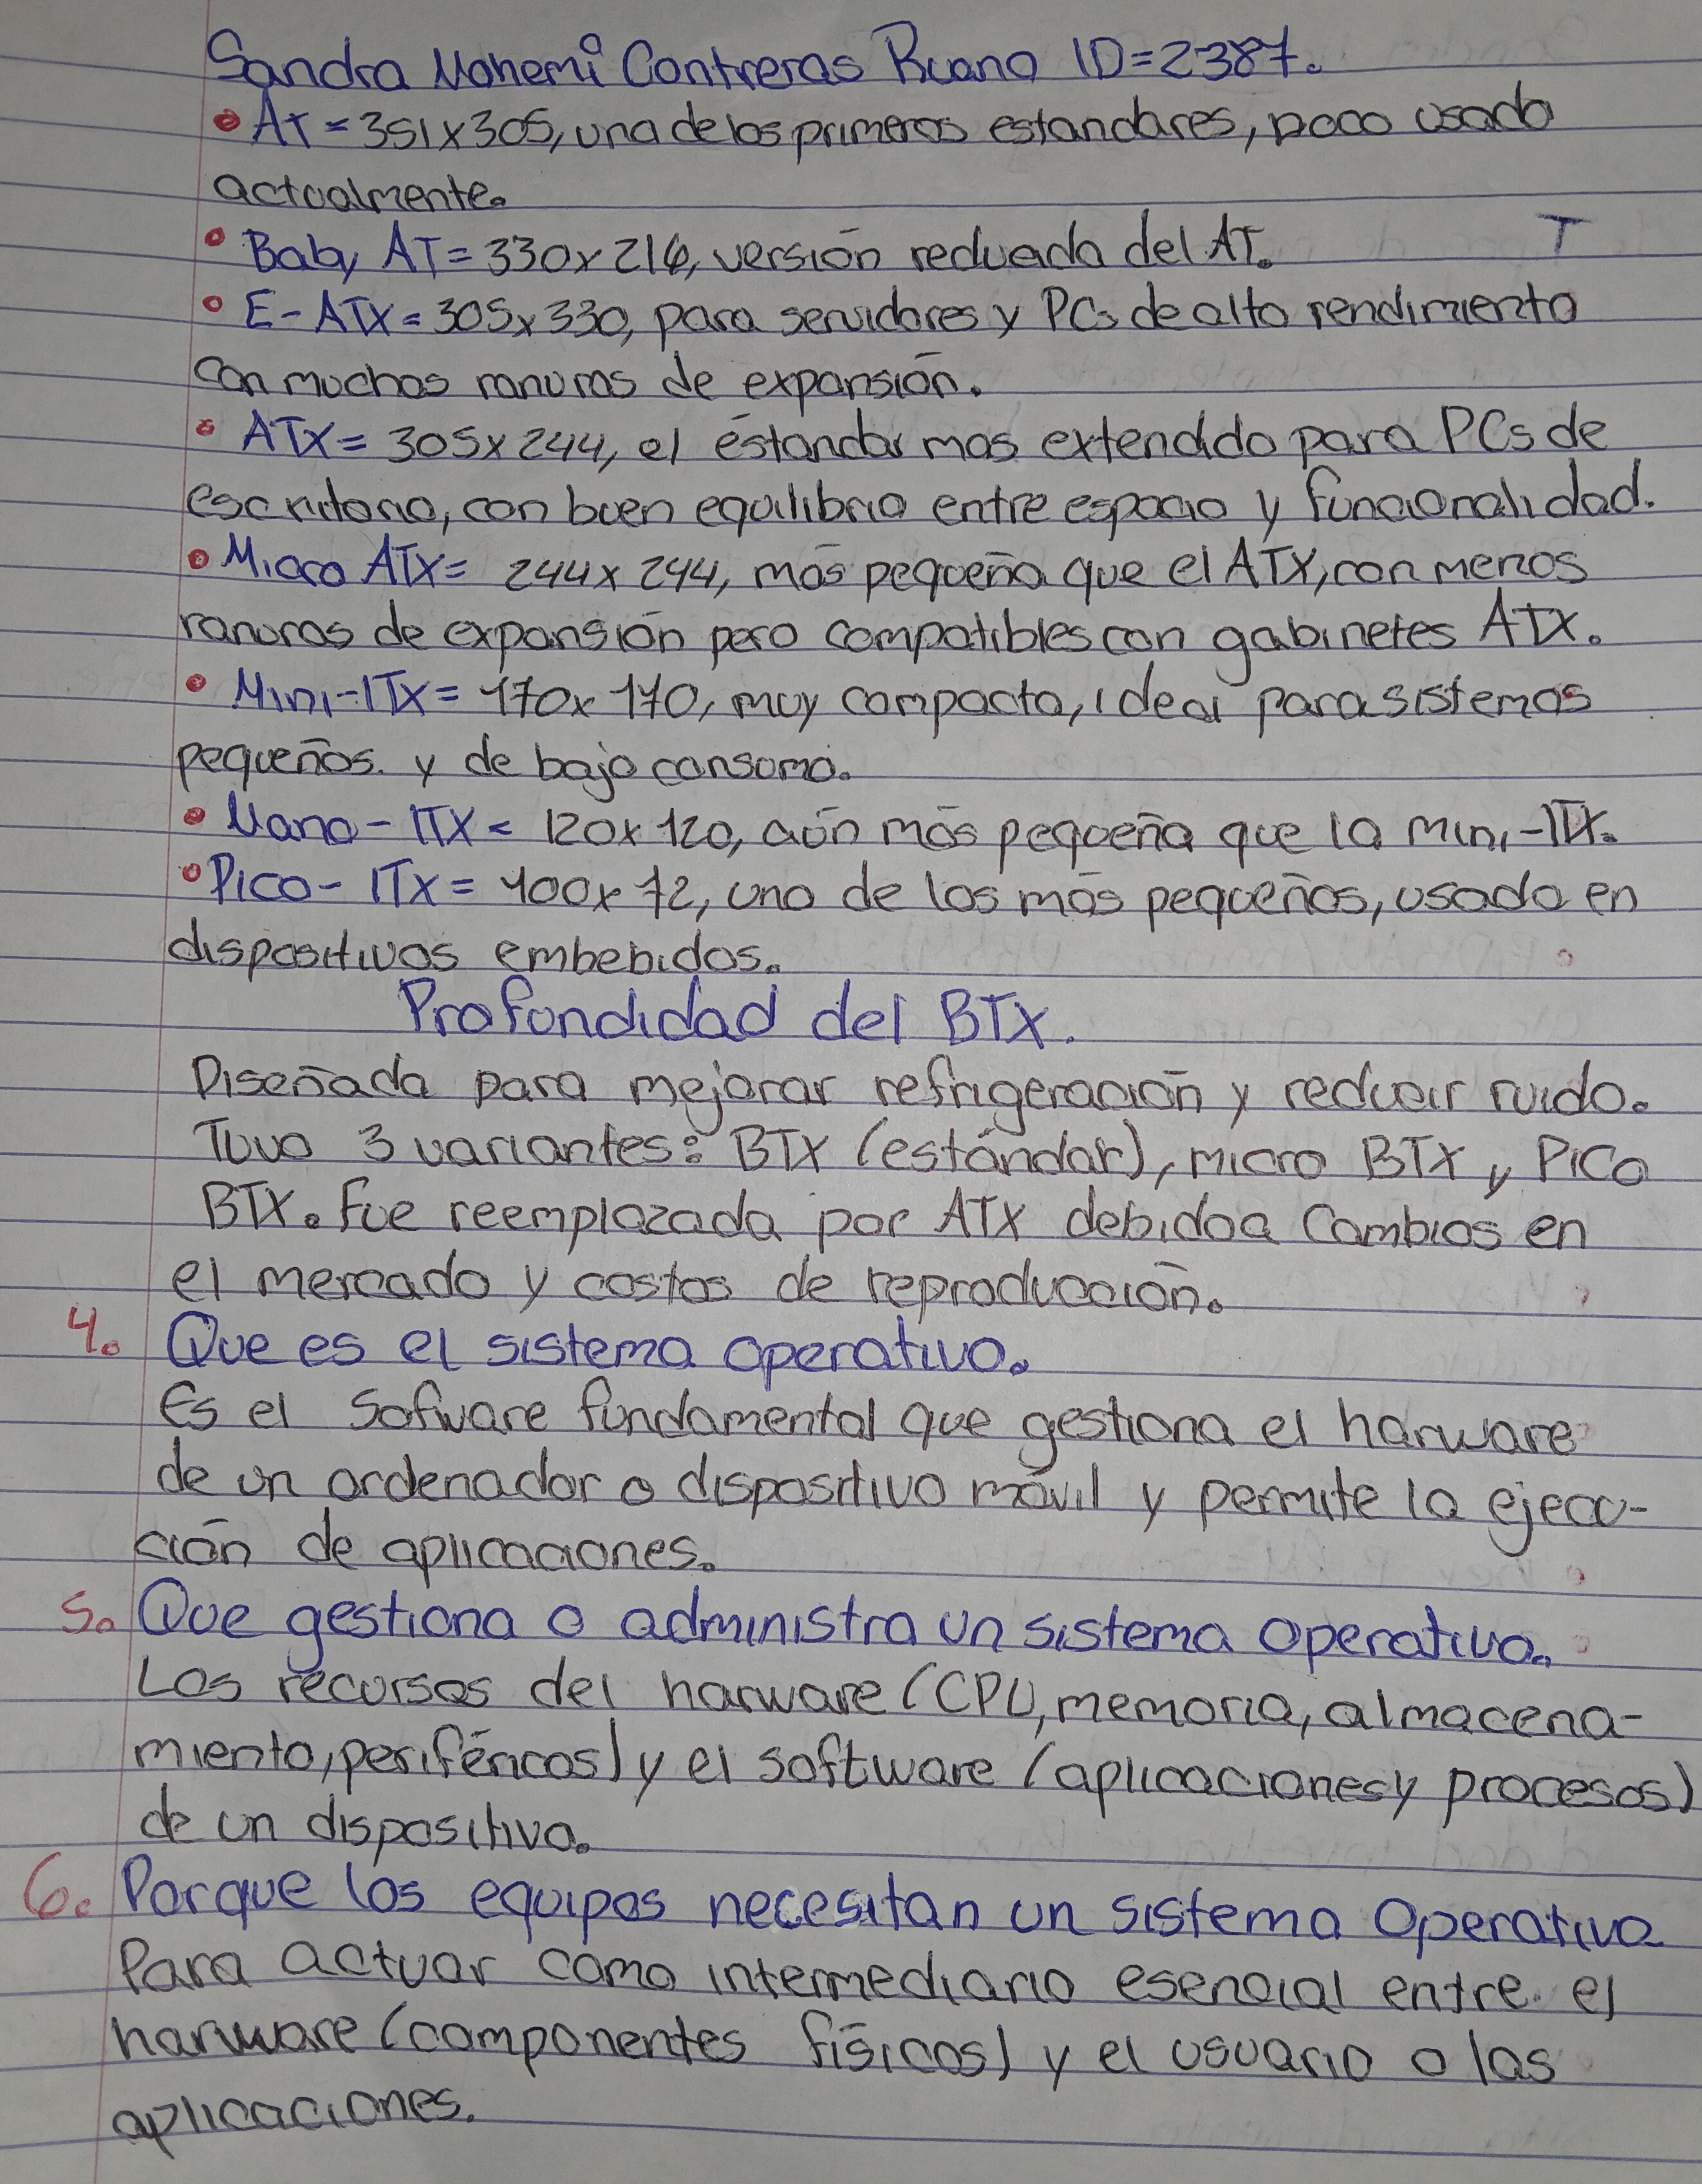 Sandra Nohemi Contreras Ruano ID=2387.
• AT = 351x305, una de los primeros estandares, poco usado
actualmente.
• Baby AT = 330x216, versión reducida del AT.
T
• E-ATX = 305x330, para servidores y PCs de alto rendimiento
con muchas ranuras de expansión.
• ATX = 305x244, el éstandar mas extendido para PCs de
escritorio, con buen equilibrio entre espacio y funcionalidad.
• Micro ATX = 244x244, más pequeña que el ATX, con menos
ranuras de expansión pero compatibles con gabinetes ATX.
• Mini-ITX = 170x170, muy compacta, ideal para sistemas
pequeños y de bajo consumo.
• Nano-ITX = 120x120, aún más pequeña que la mini-ITX.
• Pico-ITX = 100x72, uno de los más pequeños, usado en
dispositivos embebidos.
Profundidad del BTX.
Diseñada para mejorar refrigeración y reducir ruido.
Tuvo 3 variantes: BTX (estándar), micro BTX y Pico
BTX. Fue reemplazada por ATX debido a Cambios en
el mercado y costos de reproducción.
4. Que es el sistema operativo.
Es el Sofware fundamental que gestiona el harware
de un ordenador o dispositivo móvil y permite la ejecu-
ción de aplicaciones.
5. Que gestiona o administra un sistema operativo.
Los recursos del harware (CPU, memoria, almacena-
miento, periféricos) y el software (aplicaciones y procesos)
de un dispositivo.
6. Porque los equipos necesitan un sistema Operativo
Para actuar como intermediario esencial entre el
harware (componentes físicos) y el usuario o las
aplicaciones.